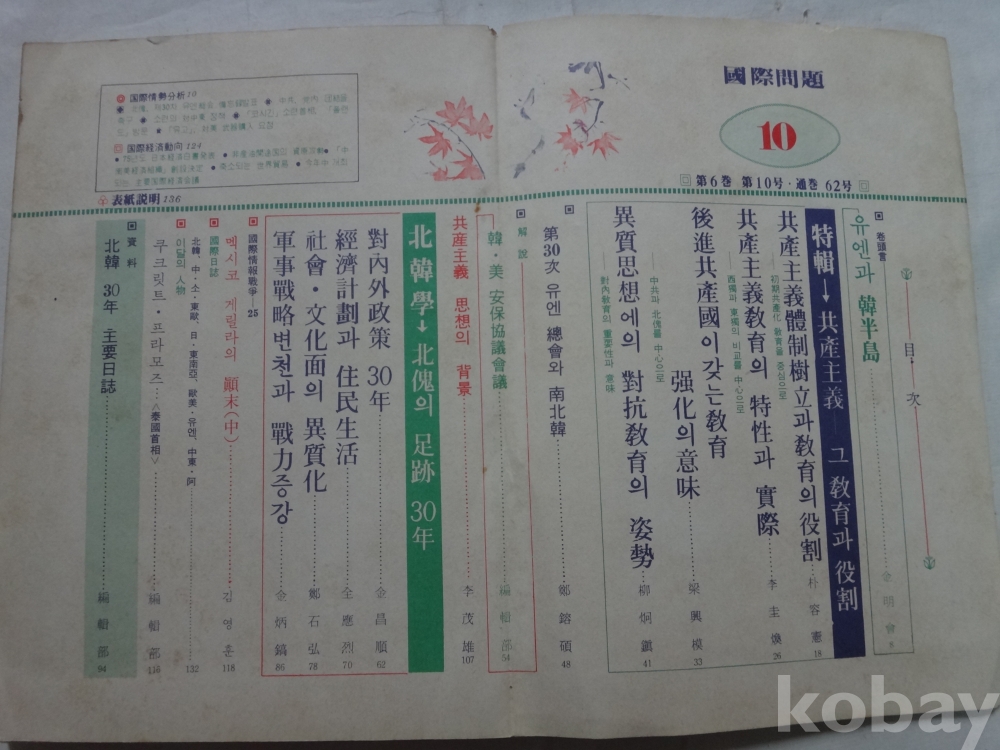 國際問題
10
第6巻 第10号·通巻 62号
目·次
巻頭言
유엔과 韓半島
特輯→共産主義─그 敎育과 役割
共産主義體制樹立과 敎育의 役割……朴容憲 18
─初期共産化 敎育을 중심으로
共産主義敎育의 特性과 實際……李圭煥 26
─西獨과 東獨의 비교를 中心으로
後進共産國이 갖는 敎育
强化의 意味……梁興模 33
─中共과 北傀를 中心으로
異質思想에의 對抗敎育의 姿勢……柳炯鎭 41
對內敎育의 重要性과 意味
解說
第30次 유엔 總會와 南北韓……鄭鎔碩 48
韓·美 安保協議會議……編輯部 54
共産主義 思想의 背景……李茂雄 107
北韓學→北傀의 足跡 30年
對內外政策 30年……金昌順 62
經濟計劃과 住民生活……全應烈 70
社會·文化面의 異質化……鄭石弘 78
軍事戰略변천과 戰力증강……金炳鎬 86
國際情報戰爭─25
멕시코 게릴라의 顚末(中)……김영훈 118
國際日誌
北韓、中·소·東歐、日·東南亞、歐美·유엔、中東·阿……132
이달의 人物
쿠크릿트·프라모즈…<泰國首相>……編輯部 116
資料
北韓 30年 主要日誌……編輯部 94
国際情勢分析 10
国際経済動向 124
表紙説明 136
kobay